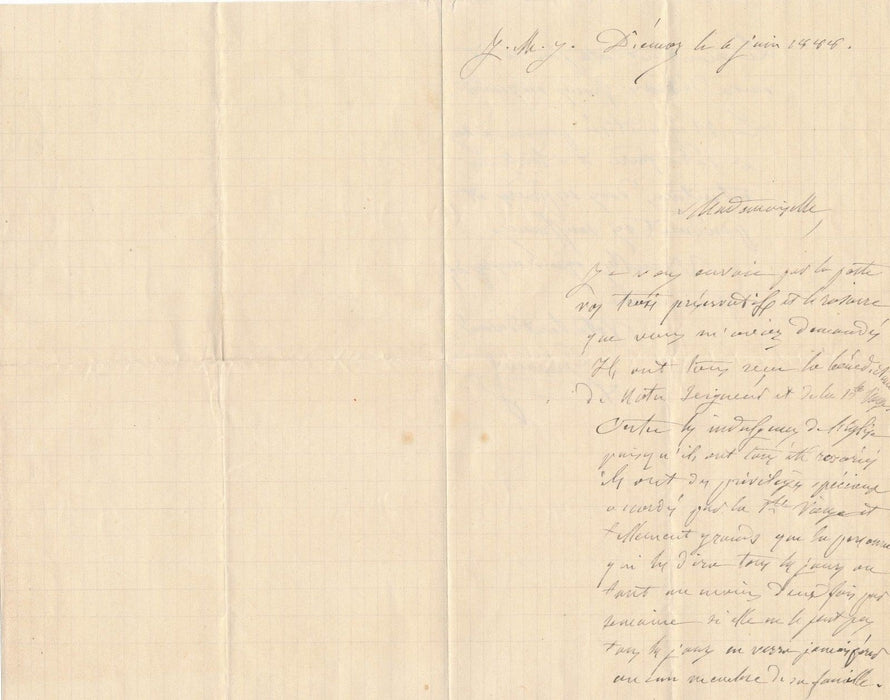 J. M. J. Diémoz le 6 juin 1888.
Mademoiselle,
Je vous envoie par la poste
vos trois préservatifs et le rosaire
que vous m'aviez demandés
Ils ont tous reçu la bénédiction
de Notre Seigneur et de la Ste Vierge
Outre les indulgences de l'église
puisqu'ils ont tous été rosariés
ils ont des privilèges spéciaux
accordés par la Ste Vierge et
tellement grands que la personne
qui les dira tous les jours ou
tout au moins deux fois par
semaine si elle ne le peut pas
tous les jours ne verra jamais
aucun membre de sa famille.